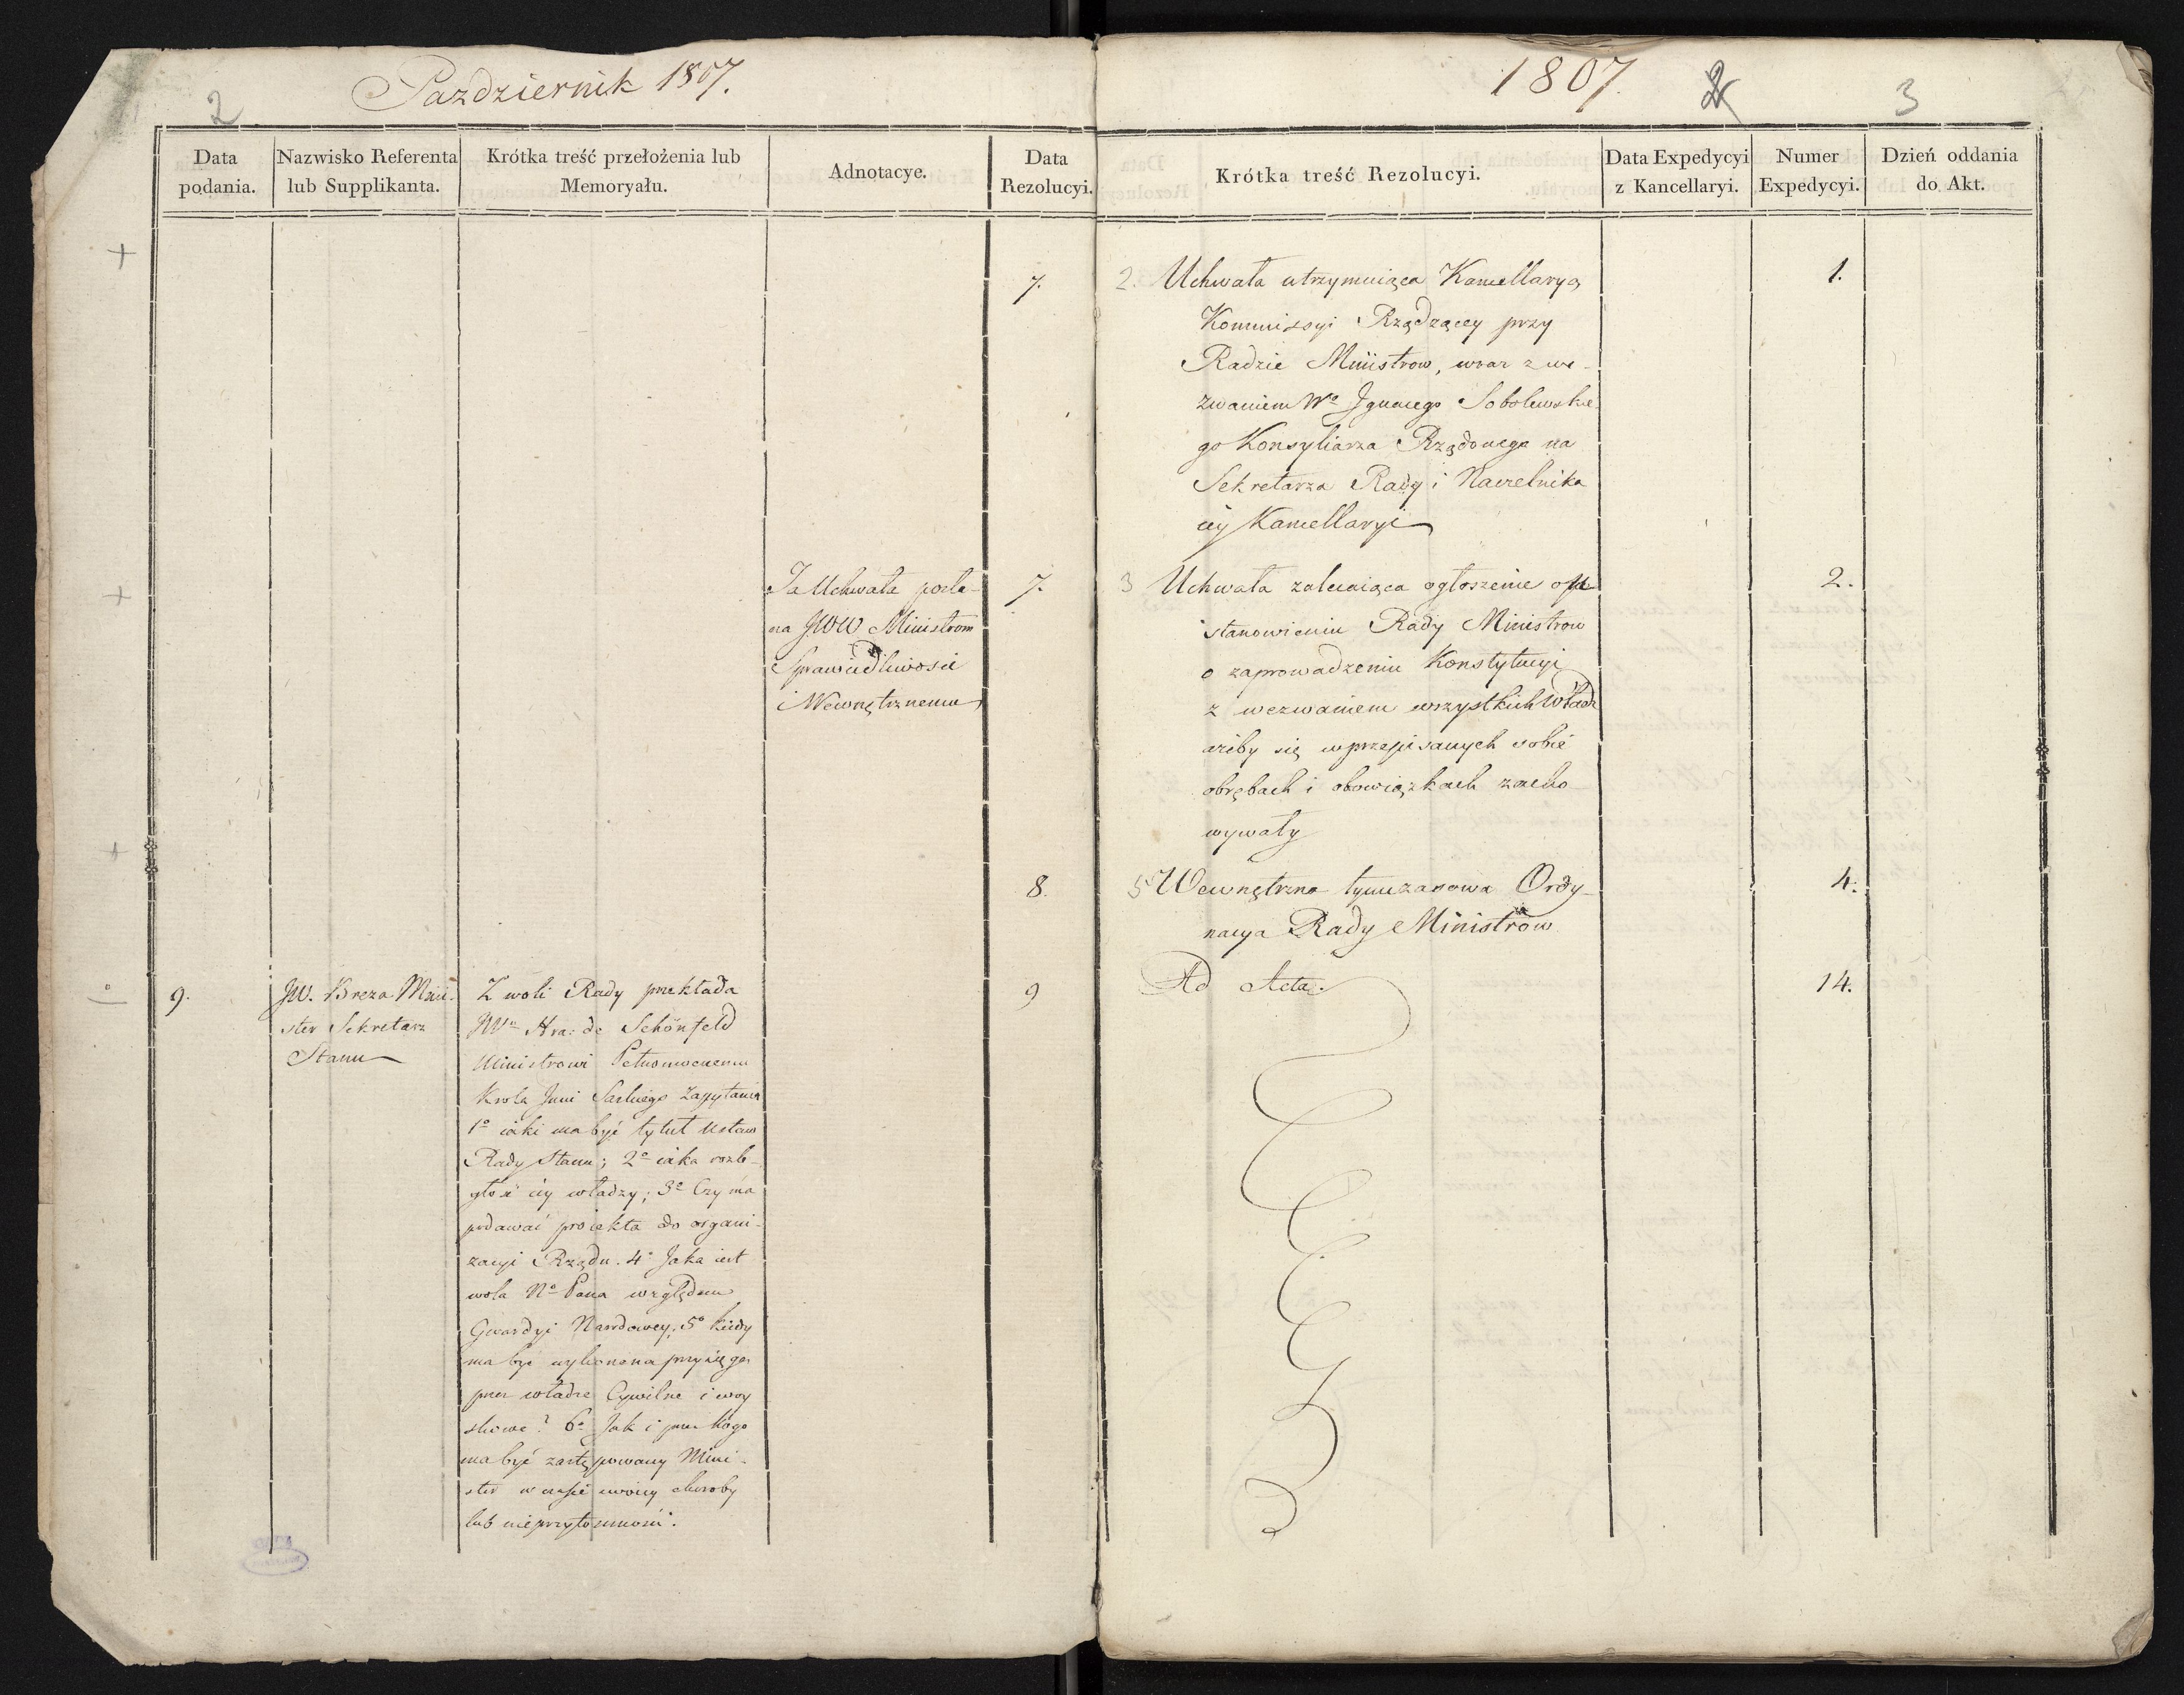 Pazdziernik 1807.
2
Data
podania.
Nazwisko Referenta
lub Supplikanta.
Krótka treść przełożenia lub
Memoryału.
Adnotacye.
Data
Rezolucyi.
Ta Uchwała posła-
na JWW Ministrom
Sprawiedliwości
i Wewnętrznemu
7.
7.
8.
9.
JW. Breza Mini-
ster Sekretarz
Stanu
Z woli Rady przekłada
JWu Hra: de Schönfeld
Ministrowi Pełnomocnemu
Krola Jmci Saskiego Zapytania
1o iaki ma być tytuł Ustaw
Rady Stanu; 2o iaka rozle-
głość iey władzy; 3o Czy ma
podawać proiekta do organi-
zacyi Rządu. 4o Jaka iest
wola No Pana względem
Gwardyi Narodowey, 5o kiedy
ma być wykonana przysięga
przez władze Cywilne i woy
skowe? 6o Jak i przez kogo
ma być zastępowany Mini-
ster w czasie swoiey choroby
lub nieprzytomności.
9
1807.
2
3
Krótka treść Rezolucyi.
Data Expedycyi
z Kancellaryi.
Numer
Expedycyi.
Dzień oddania
do Akt.
2. Uchwała utrzymuiąca Kancellaryą 1.
Kommissyi Rządzącey przy
Radzie Ministrow, wraz z we-
zwaniem Wo Jgnacego Sobolewskie
go Konsyliarza Rządowego na
Sekretarza Rady i Naczelnika
iey Kancellaryi
3 Uchwała zalecaiąca ogłoszenie o po 2.
stanowieniu Rady Ministrow
o zaprowadzeniu Konstytucyi
z wezwaniem wszystkich Władz
ażeby się w przepisanych sobie
obrębach i obowiązkach zacho-
wywały
5 Wewnętrzna tymczasowa Ordy- 4.
nacya Rady Ministrów
Ad Acta. 14.